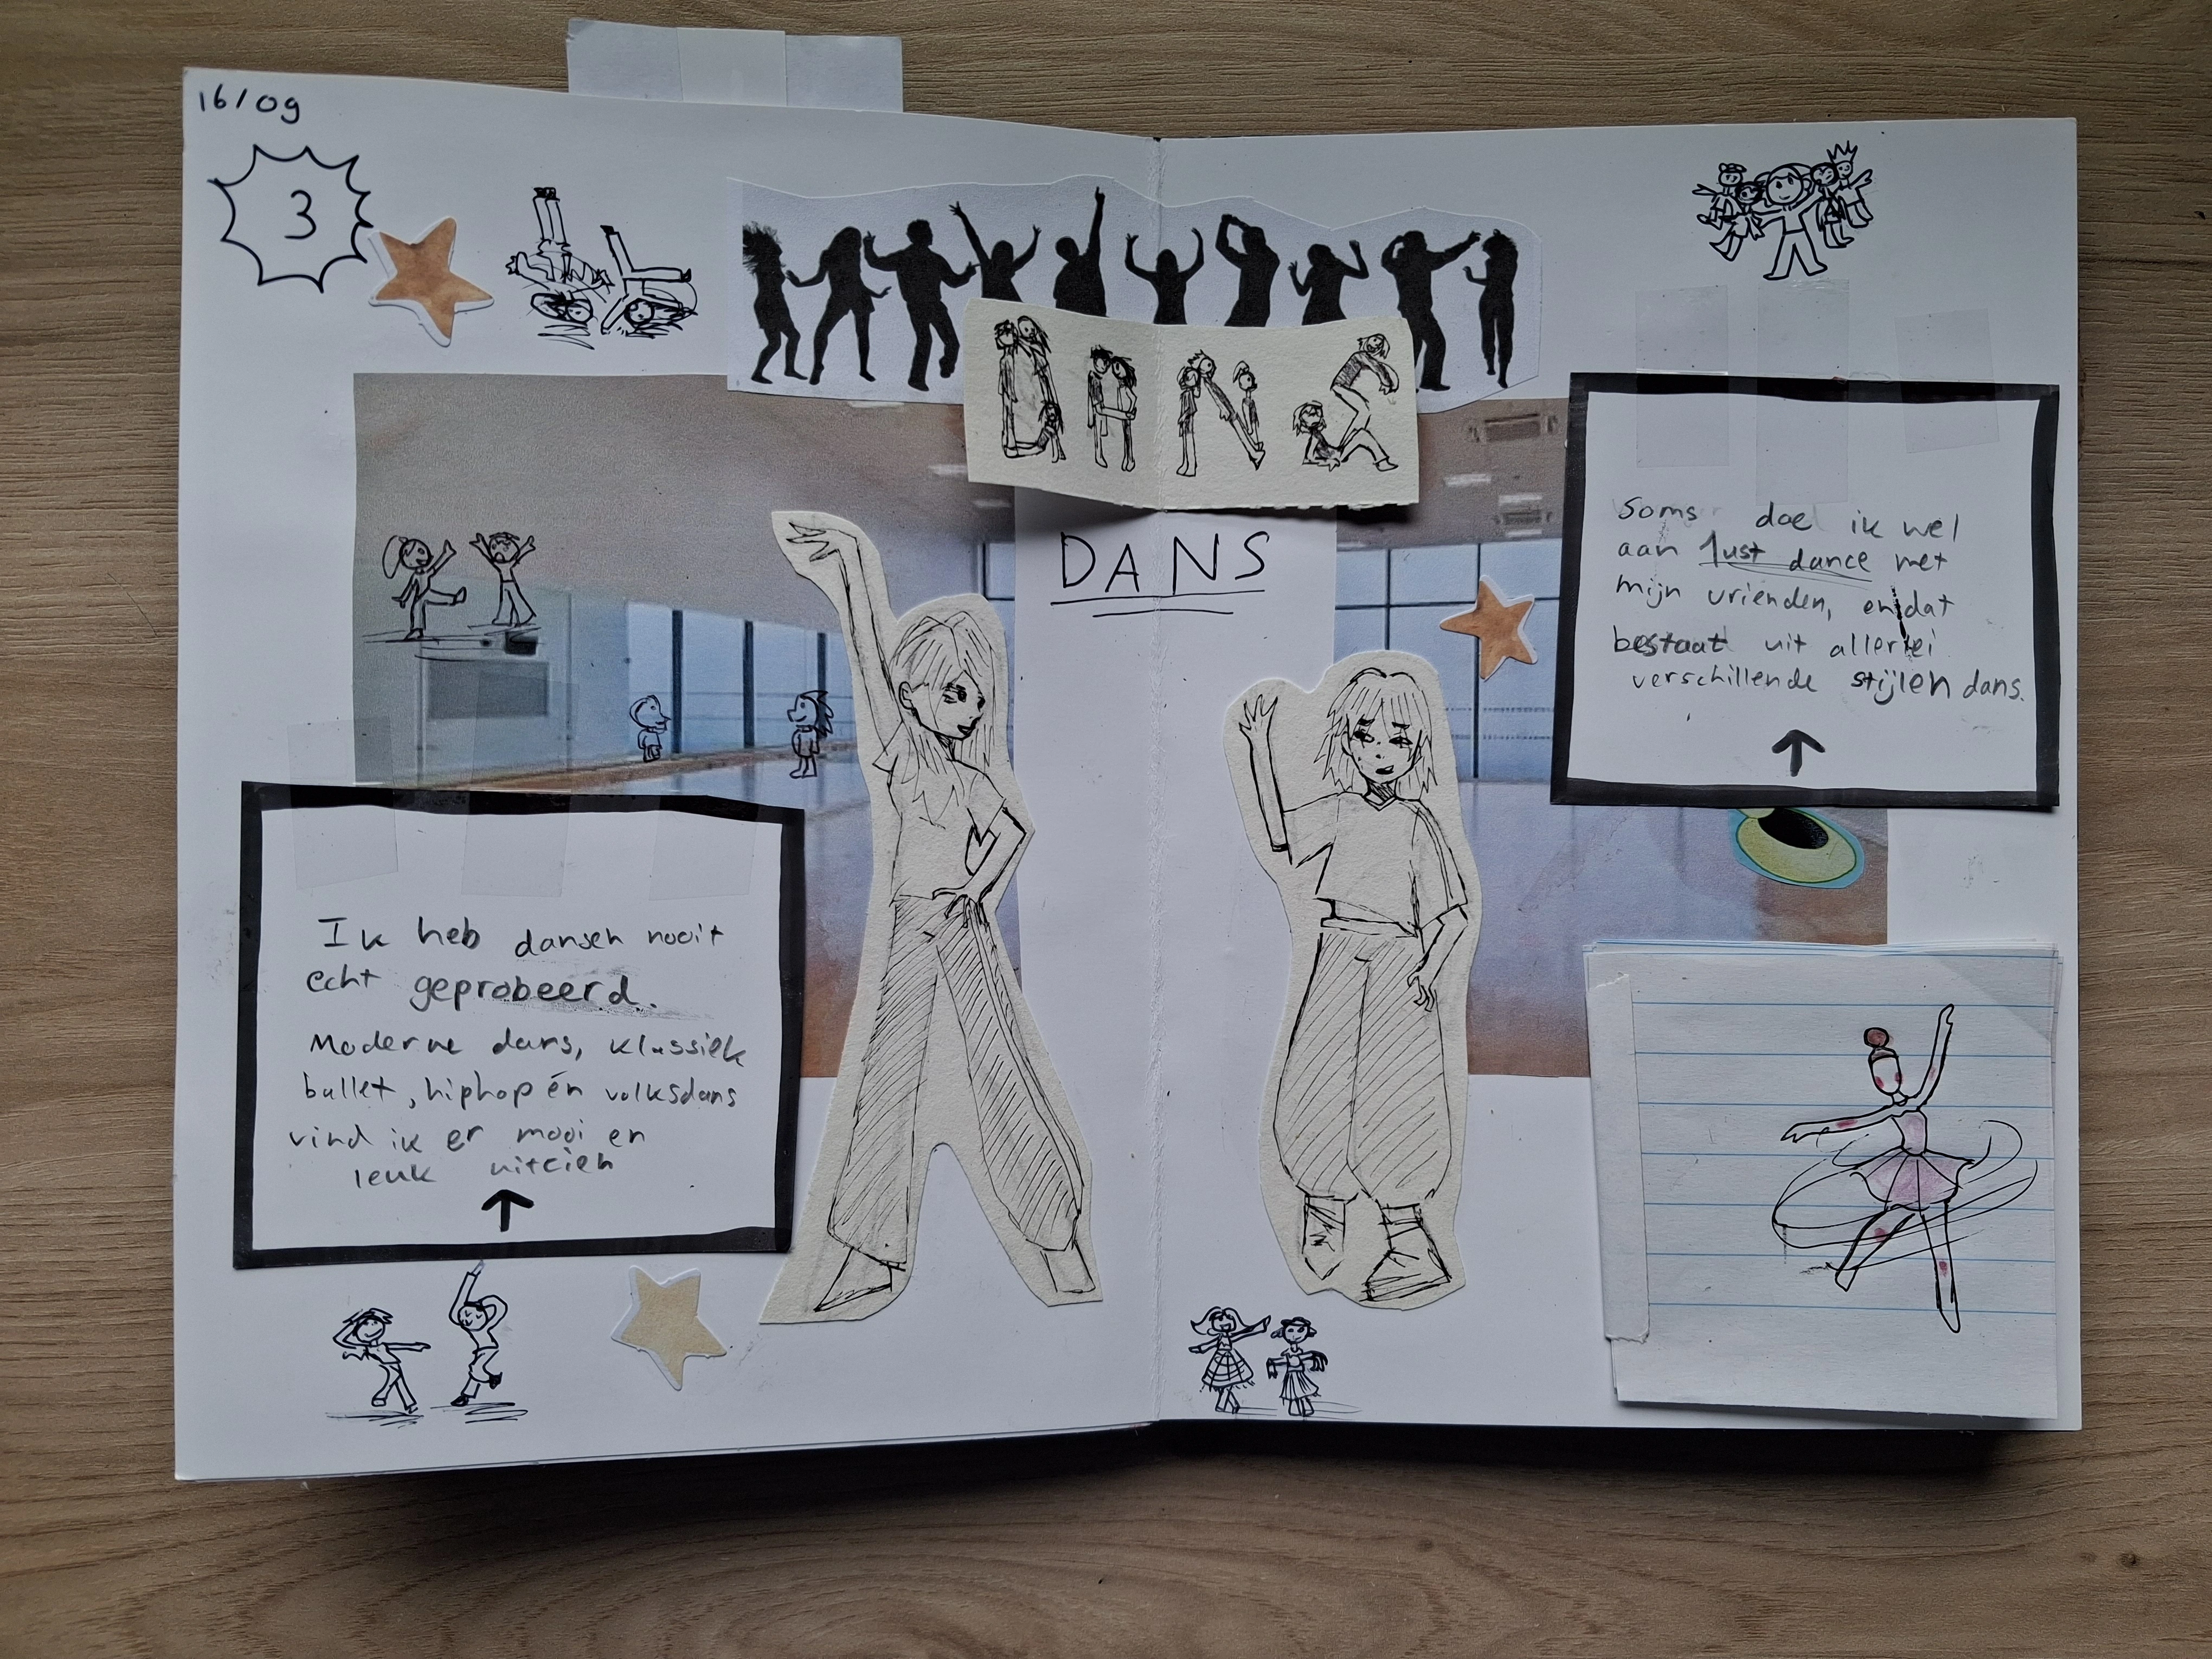 16/09
3
DANS
DANS
Soms doe ik wel
aan Just dance met
mijn vrienden, en dat
bestaat uit allerlei
verschillende stijlen dans.
Ik heb dansen nooit
echt geprobeerd.
Moderne dans, klassiek
ballet, hiphop én volksdans
vind ik er mooi en
leuk uitzien